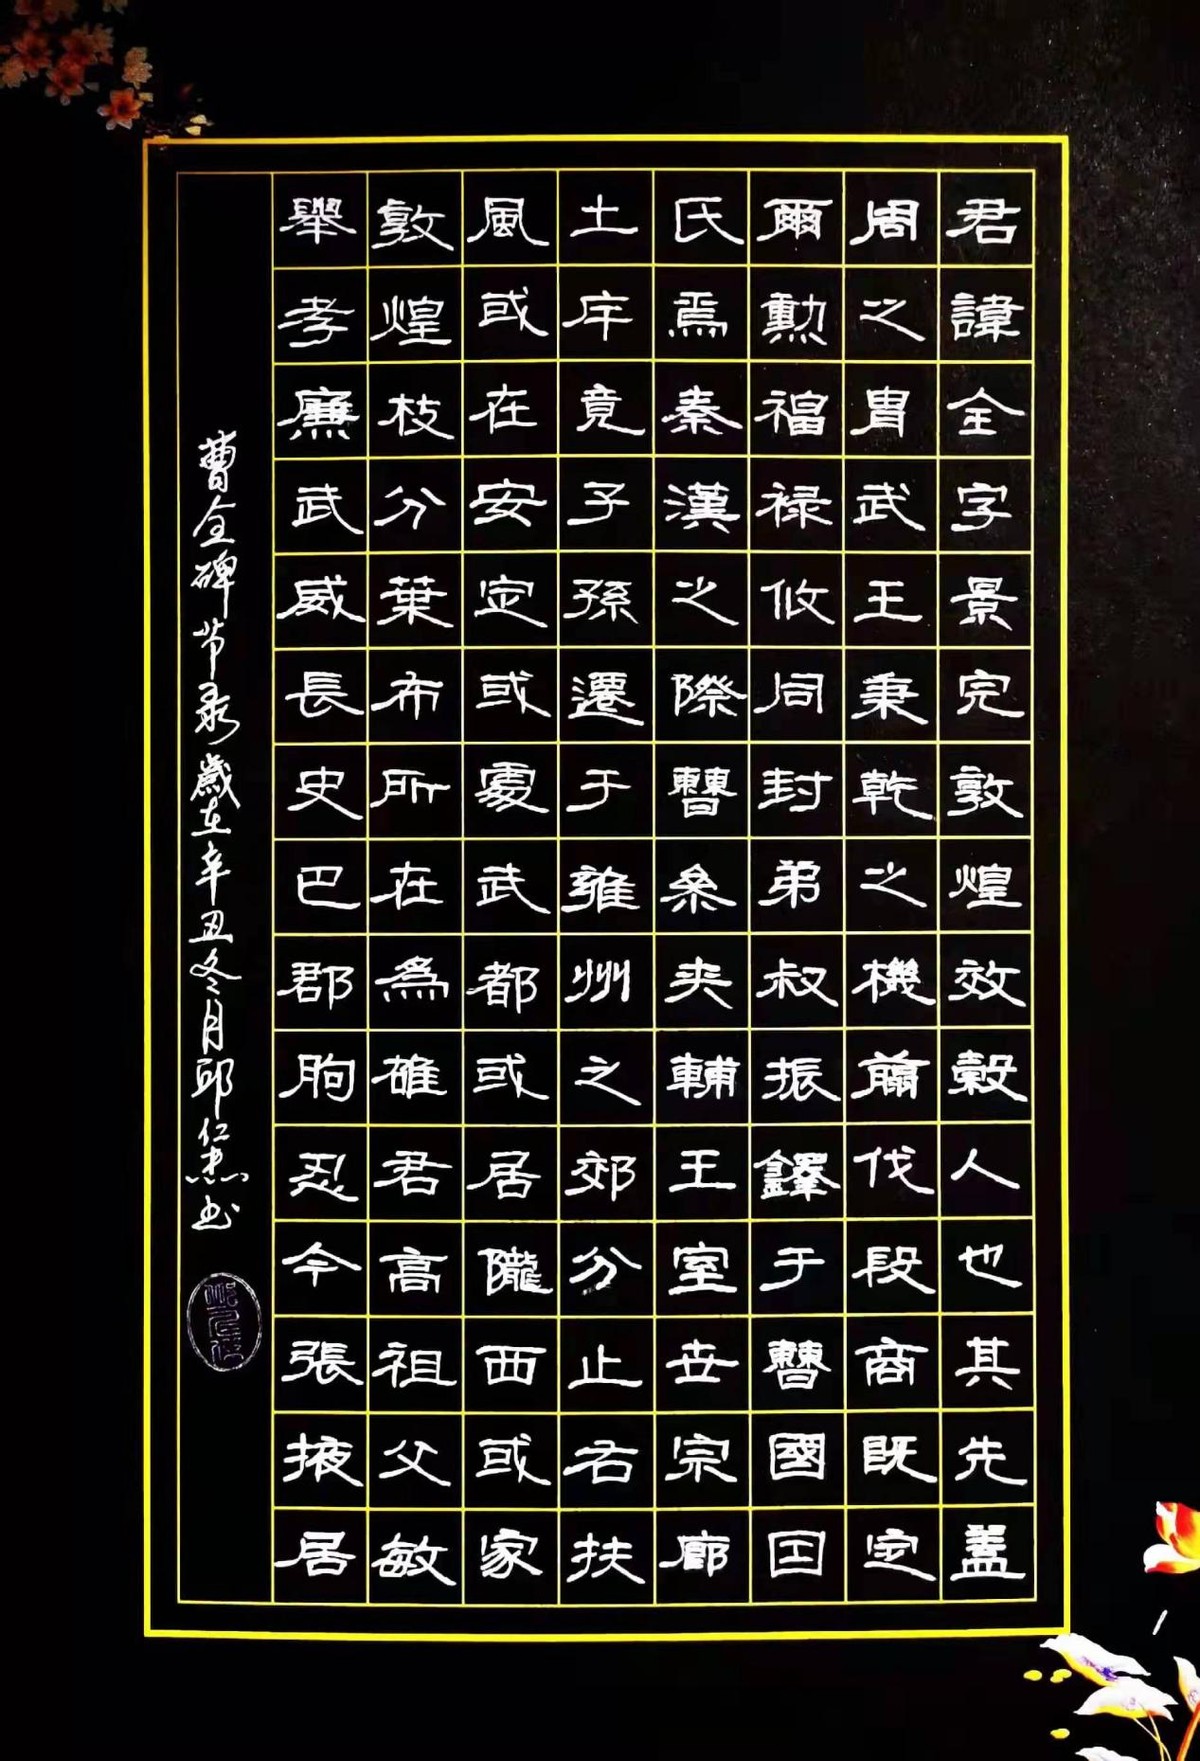 君諱全字景完敦煌效穀人也其先蓋
周之胄武王秉乾之機翦伐殷商既定
爾勲福禄攸同封弟叔振鐸于曹國囯
氏焉秦漢之際曹叅夾輔王室世宗廓
土庁竟子孫遷于雍州之郊分止右扶
風或在安定或處武都或居隴西或家
敦煌枝分葉布所在為雄君高祖父敏
舉孝廉武威長史巴郡朐忍令張掖居
曹全碑节录歲在辛丑冬月邱仁杰书